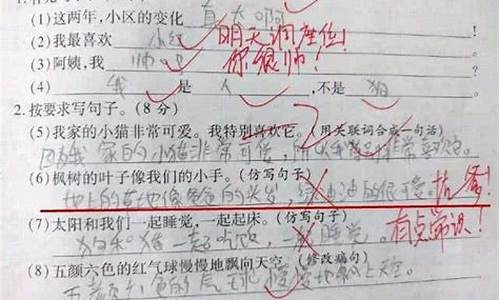 (1)这两年,小区的变化 真大啊
(2)我最喜欢 小红 明天调座位!
(3)阿姨,我 帅吗 你很帅!
(4) 我 是 人 ,不是 狗
2.按要求写句子。(8 分)
(5)我家的小猫非常可爱。我特别喜欢它。(用关联词合成一句话)
因为我家的小猫非常可爱,所以我特别非常喜欢它。
(6)枫树的叶子像我们的小手。(仿写句子)
地上的草地像爸爸的头发,绿油油的很可爱。
(7)太阳和我们一起睡觉,一起起床。(仿写句子) 有点常识!
狗和猫一起吃饭,一起睡觉。
(8)五颜六色的红气球慢慢地飘向天空。(修改病句)
五颜六色的气球慢慢地飘上天空。